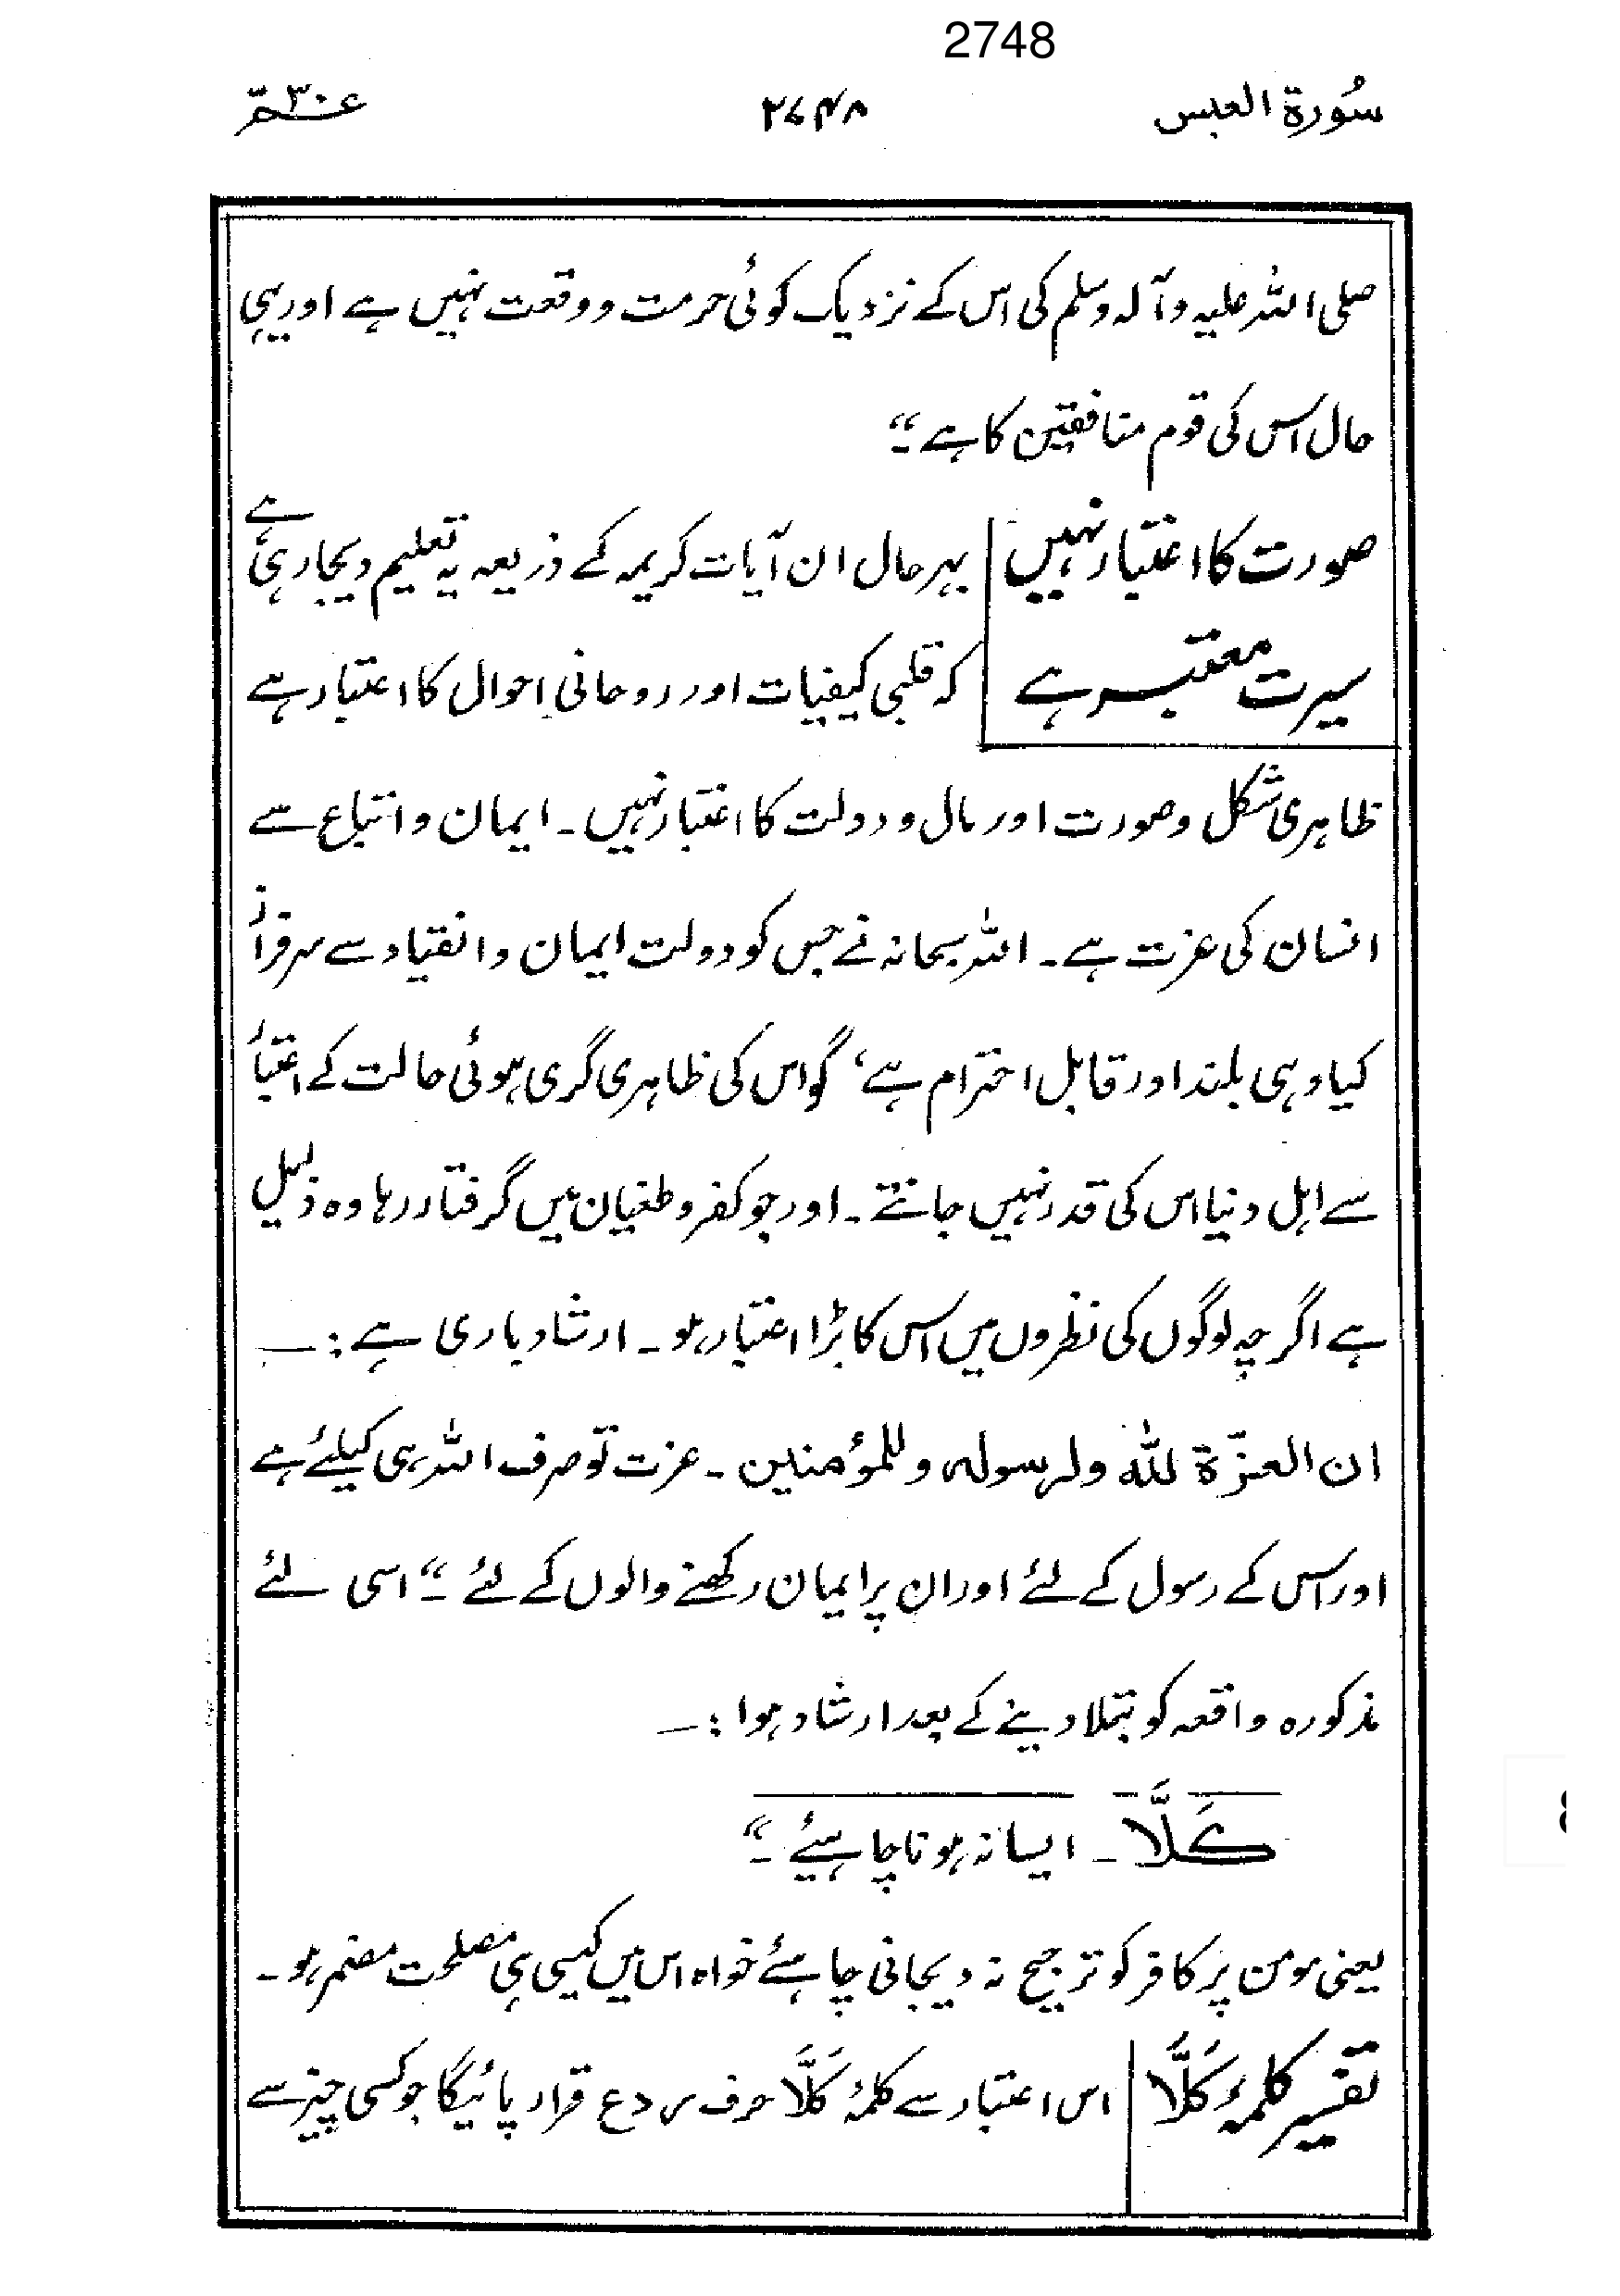 2748
سُورۃ العبس ۲۷۴۸ عمّ ۳۰
صلی اللہ علیہ وآلہ وسلم کی اس کے نزدیک کوئی حرمت و وقعت نہیں ہے اور یہی
حال اس کی قوم منافقین کا ہے ۔“
صورت کا اعتبار نہیں بہر حال ان آیات کریمہ کے ذریعہ یہ تعلیم دیجا رہی ہے
سیرت معتبر ہے کہ قلبی کیفیات اور روحانی احوال کا اعتبار ہے
ظاہری شکل وصورت اور مال و دولت کا اعتبار نہیں ۔ ایمان و اتباع سے
انسان کی عزت ہے ۔ اللہ سبحانہ نے جس کو دولت ایمان وانقیاد سے سرفراز
کیا وہی بلند اور قابل احترام ہے، گو اس کی ظاہری گری ہوئی حالت کے اعتبار
سے اہل دنیا اس کی قدر نہیں جانتے ۔ اور جو کفر و طغیان میں گرفتار رہا وہ ذلیل
ہے اگر چہ لوگوں کی نظروں میں اس کا بڑا اعتبار ہو ۔ ارشاد باری ہے :—
ان العزّۃ للہ ولرسولہ وللمؤمنین ۔ عزت تو صرف اللہ ہی کیلئے ہے
اور اس کے رسول کے لئے اور ان پر ایمان رکھنے والوں کے لئے ۔“ اسی لئے
مذکورہ واقعہ کو بتلا دینے کے بعد ارشاد ہوا :—
کَلَّا ۔ ایسا نہ ہونا چاہیئے ۔“
یعنی مومن پر کافر کو ترجیح نہ دیجانی چاہئے خواہ اس میں کیسی ہی مصلحت مضمر ہو ۔
تفسیر کلمۂ کَلَّا اس اعتبار سے کلمۂ کَلَّا حرف ردع قرار پائیگا جو کسی چیز سے